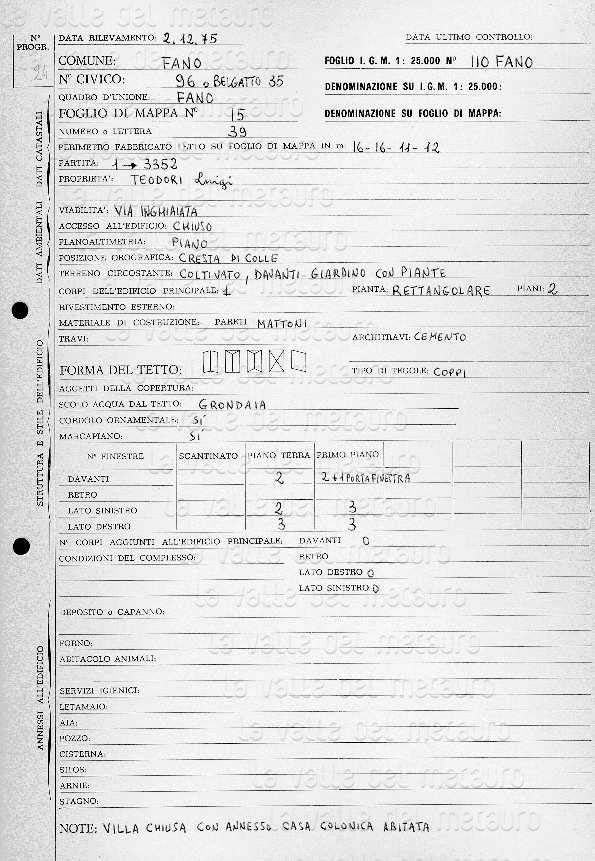 Nº PROGR. DATA RILEVAMENTO: 2.12.75 DATA ULTIMO CONTROLLO:
24
COMUNE: FANO FOGLIO I. G. M. 1: 25.000 Nº 110 FANO
Nº CIVICO: 96 o BELGATTO 35 DENOMINAZIONE SU I. G. M. 1: 25.000:
QUADRO D'UNIONE: FANO
FOGLIO DI MAPPA Nº 15 DENOMINAZIONE SU FOGLIO DI MAPPA:
NUMERO o LETTERA 39
PERIMETRO FABBRICATO LETTO SU FOGLIO DI MAPPA IN m 16-16-11-12
PARTITA: 1 → 3352
PROPRIETA': TEODORI Luigi
DATI CATASTALI
VIABILITA': VIA INGHIAIATA
ACCESSO ALL'EDIFICIO: CHIUSO
PLANOALTIMETRIA: PIANO
POSIZIONE OROGRAFICA: CRESTA DI COLLE
TERRENO CIRCOSTANTE: COLTIVATO, DAVANTI GIARDINO CON PIANTE
DATI AMBIENTALI
CORPI DELL'EDIFICIO PRINCIPALE: 1 PIANTA: RETTANGOLARE PIANI: 2
RIVESTIMENTO ESTERNO:
MATERIALE DI COSTRUZIONE: PARETI MATTONI
TRAVI: ARCHITRAVI: CEMENTO
FORMA DEL TETTO: TIPO DI TEGOLE: COPPI
AGGETTI DELLA COPERTURA:
SCOLO ACQUA DAL TETTO: GRONDAIA
CORDOLO ORNAMENTALE: SI
MARCAPIANO: SI
STRUTTURA E STILE DELL'EDIFICIO
Nº FINESTRE SCANTINATO PIANO TERRA PRIMO PIANO
DAVANTI 2 2+1 PORTAFINESTRA
RETRO
LATO SINISTRO 2 3
LATO DESTRO 3 3
Nº CORPI AGGIUNTI ALL'EDIFICIO PRINCIPALE: DAVANTI 0
CONDIZIONI DEL COMPLESSO: RETRO
LATO DESTRO 0
LATO SINISTRO 0
DEPOSITO o CAPANNO:
FORNO:
ABITACOLO ANIMALI:
SERVIZI IGIENICI:
LETAMAIO:
AIA:
POZZO:
CISTERNA:
SILOS:
ARNIE:
STAGNO:
ANNESSI ALL'EDIFICIO
NOTE: VILLA CHIUSA CON ANNESSO CASA COLONICA ABITATA
La valle del metauro